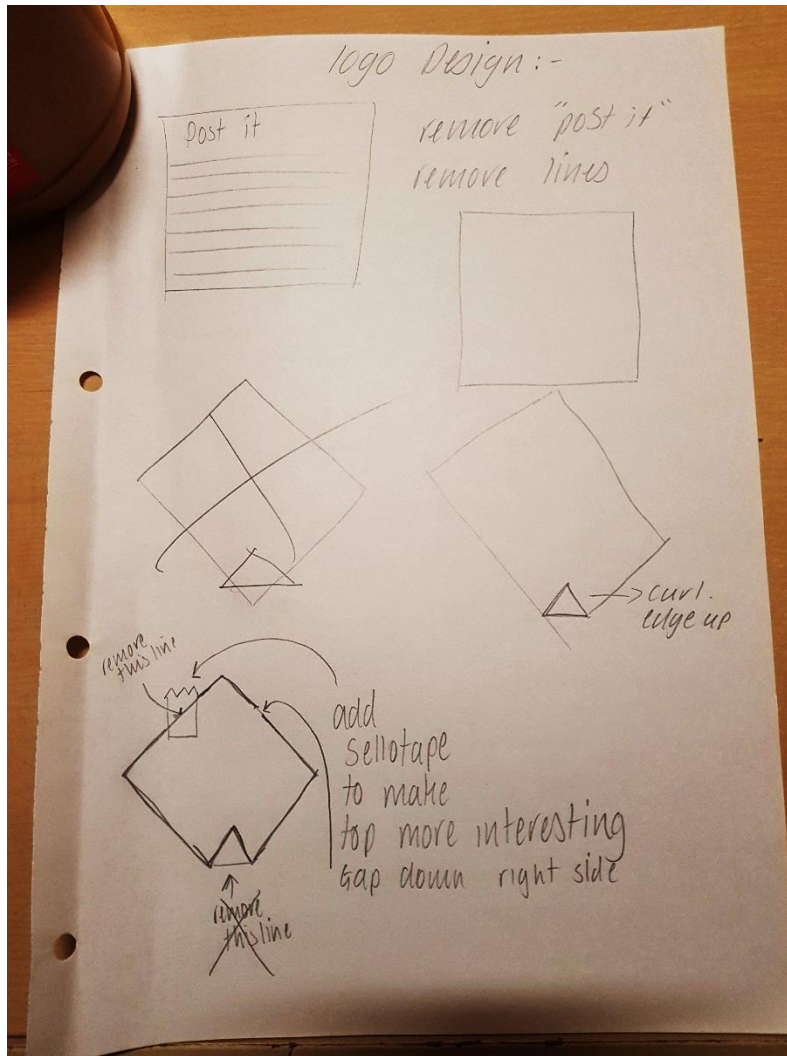 logo Design:-
Post it
remove "post it"
remove lines
curl.
edge up
remove
this line
add
sellotape
to make
top more interesting
Gap down right side
remove
this line